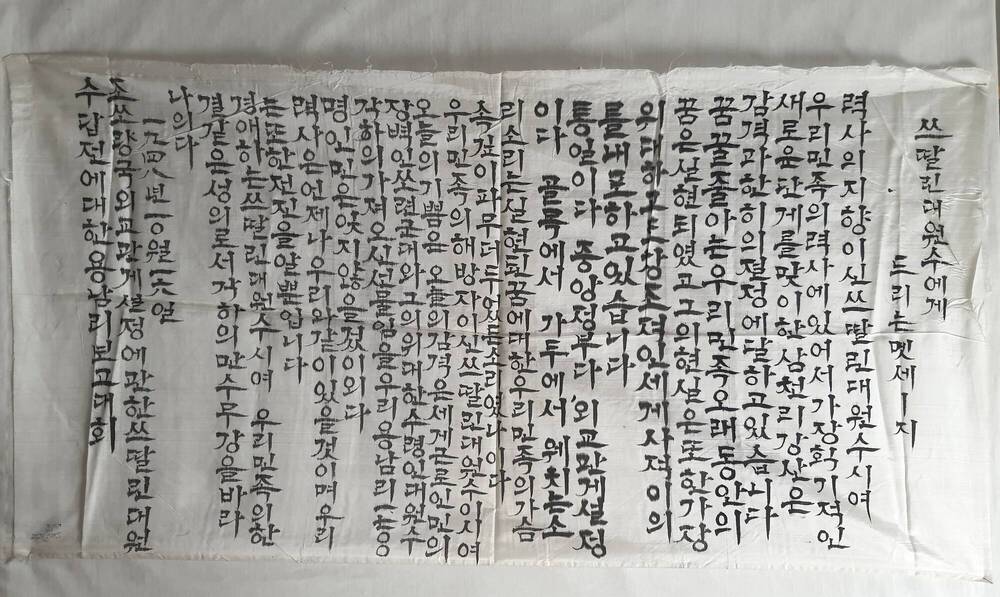 쓰딸린대원수에게
드리는멧세ㅡ지
력사의지향이신쓰딸린대원수시여
우리민족의력사에있어서가장획기적인
새로운단게를맞이한삼천리강산은
감격과한히의절정에달하고있습니다
꿈꿀줄아는우리민족오래동안의
꿈은실현되였고그의현실은또한가장
위대하고또창조적인세게사적이의
를내포하고있습니다
통일이다 중앙정부다 외교관게설정
이다 골목에서 가두에서 웨치는소
리소리는실현된꿈에대한우리민족의가슴
속깊이파무더두었든소리였나이다
우리민족의해방자이신쓰딸린대원수이시여
오늘의기쁨은 오늘의감격은세게근로인민의
장벽인쏘련군대와그의위대한수령인대원수
각하의가져오신선물임을우리용남리一동
명인민은잊지않을것이외다
력사은언제나우리와같이있을것이며우리
는또한전진을알뿐입니다
경애하는쓰딸린대원수시여 우리민족의한
결같은성의로서각하의만수무강을바라
나의다
一九四八년一〇월一六일
조쏘량국외교관게설정에관한쓰딸린대원
수답전에대한용남리보고대회